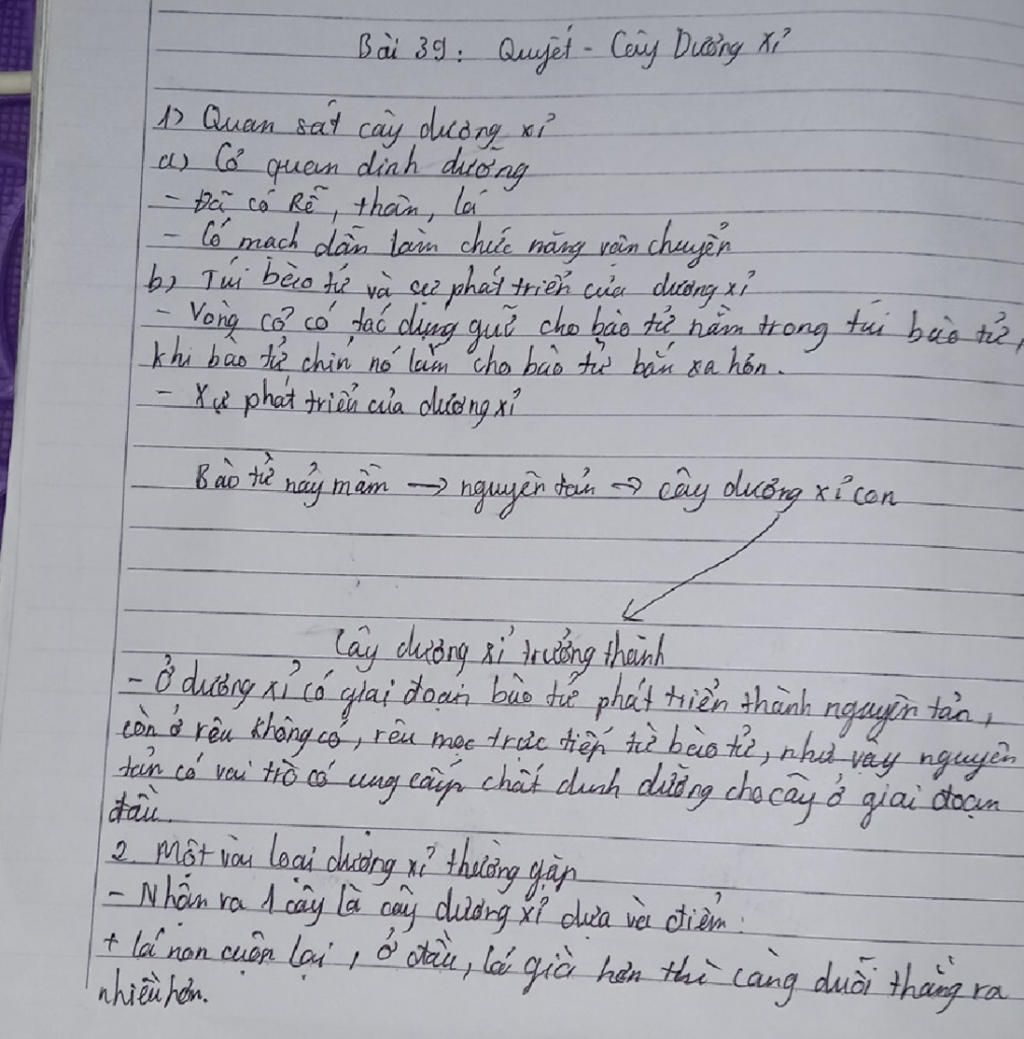 Bài 39: Quyết - Cây Dương Xỉ
1) Quan sát cây dương xỉ
a) Cơ quan dinh dưỡng
- Đã có Rễ, thân, lá
- Có mạch dẫn làm chức năng vận chuyển
b) Túi bào tử và sự phát triển của dương xỉ
- Vòng cơ có tác dụng guĩ cho bào tử nằm trong túi bào tử,
khi bào tử chín nó làm cho bào tử bắn xa hơn.
- Xự phát triển của dương xỉ
Bào tử nảy mầm → nguyên tản → cây dương xỉ con
Cây dương xỉ trưởng thành
- Ở dương xỉ có giai đoạn bào tử phát triển thành nguyên tản,
còn ở rêu không có, rêu mọc trực tiếp từ bào tử, như vậy nguyên
tản có vai trò có ung cấp chất dinh dưỡng cho cây ở giai đoạn
đầu.
2. Một vài loại dương xỉ thường gặp
- Nhận ra 1 cây là cây dương xỉ dựa vào điểm:
+ lá non cuộn lại, ở đầu, lá già hơn thì càng duỗi thẳng ra
nhiều hơn.